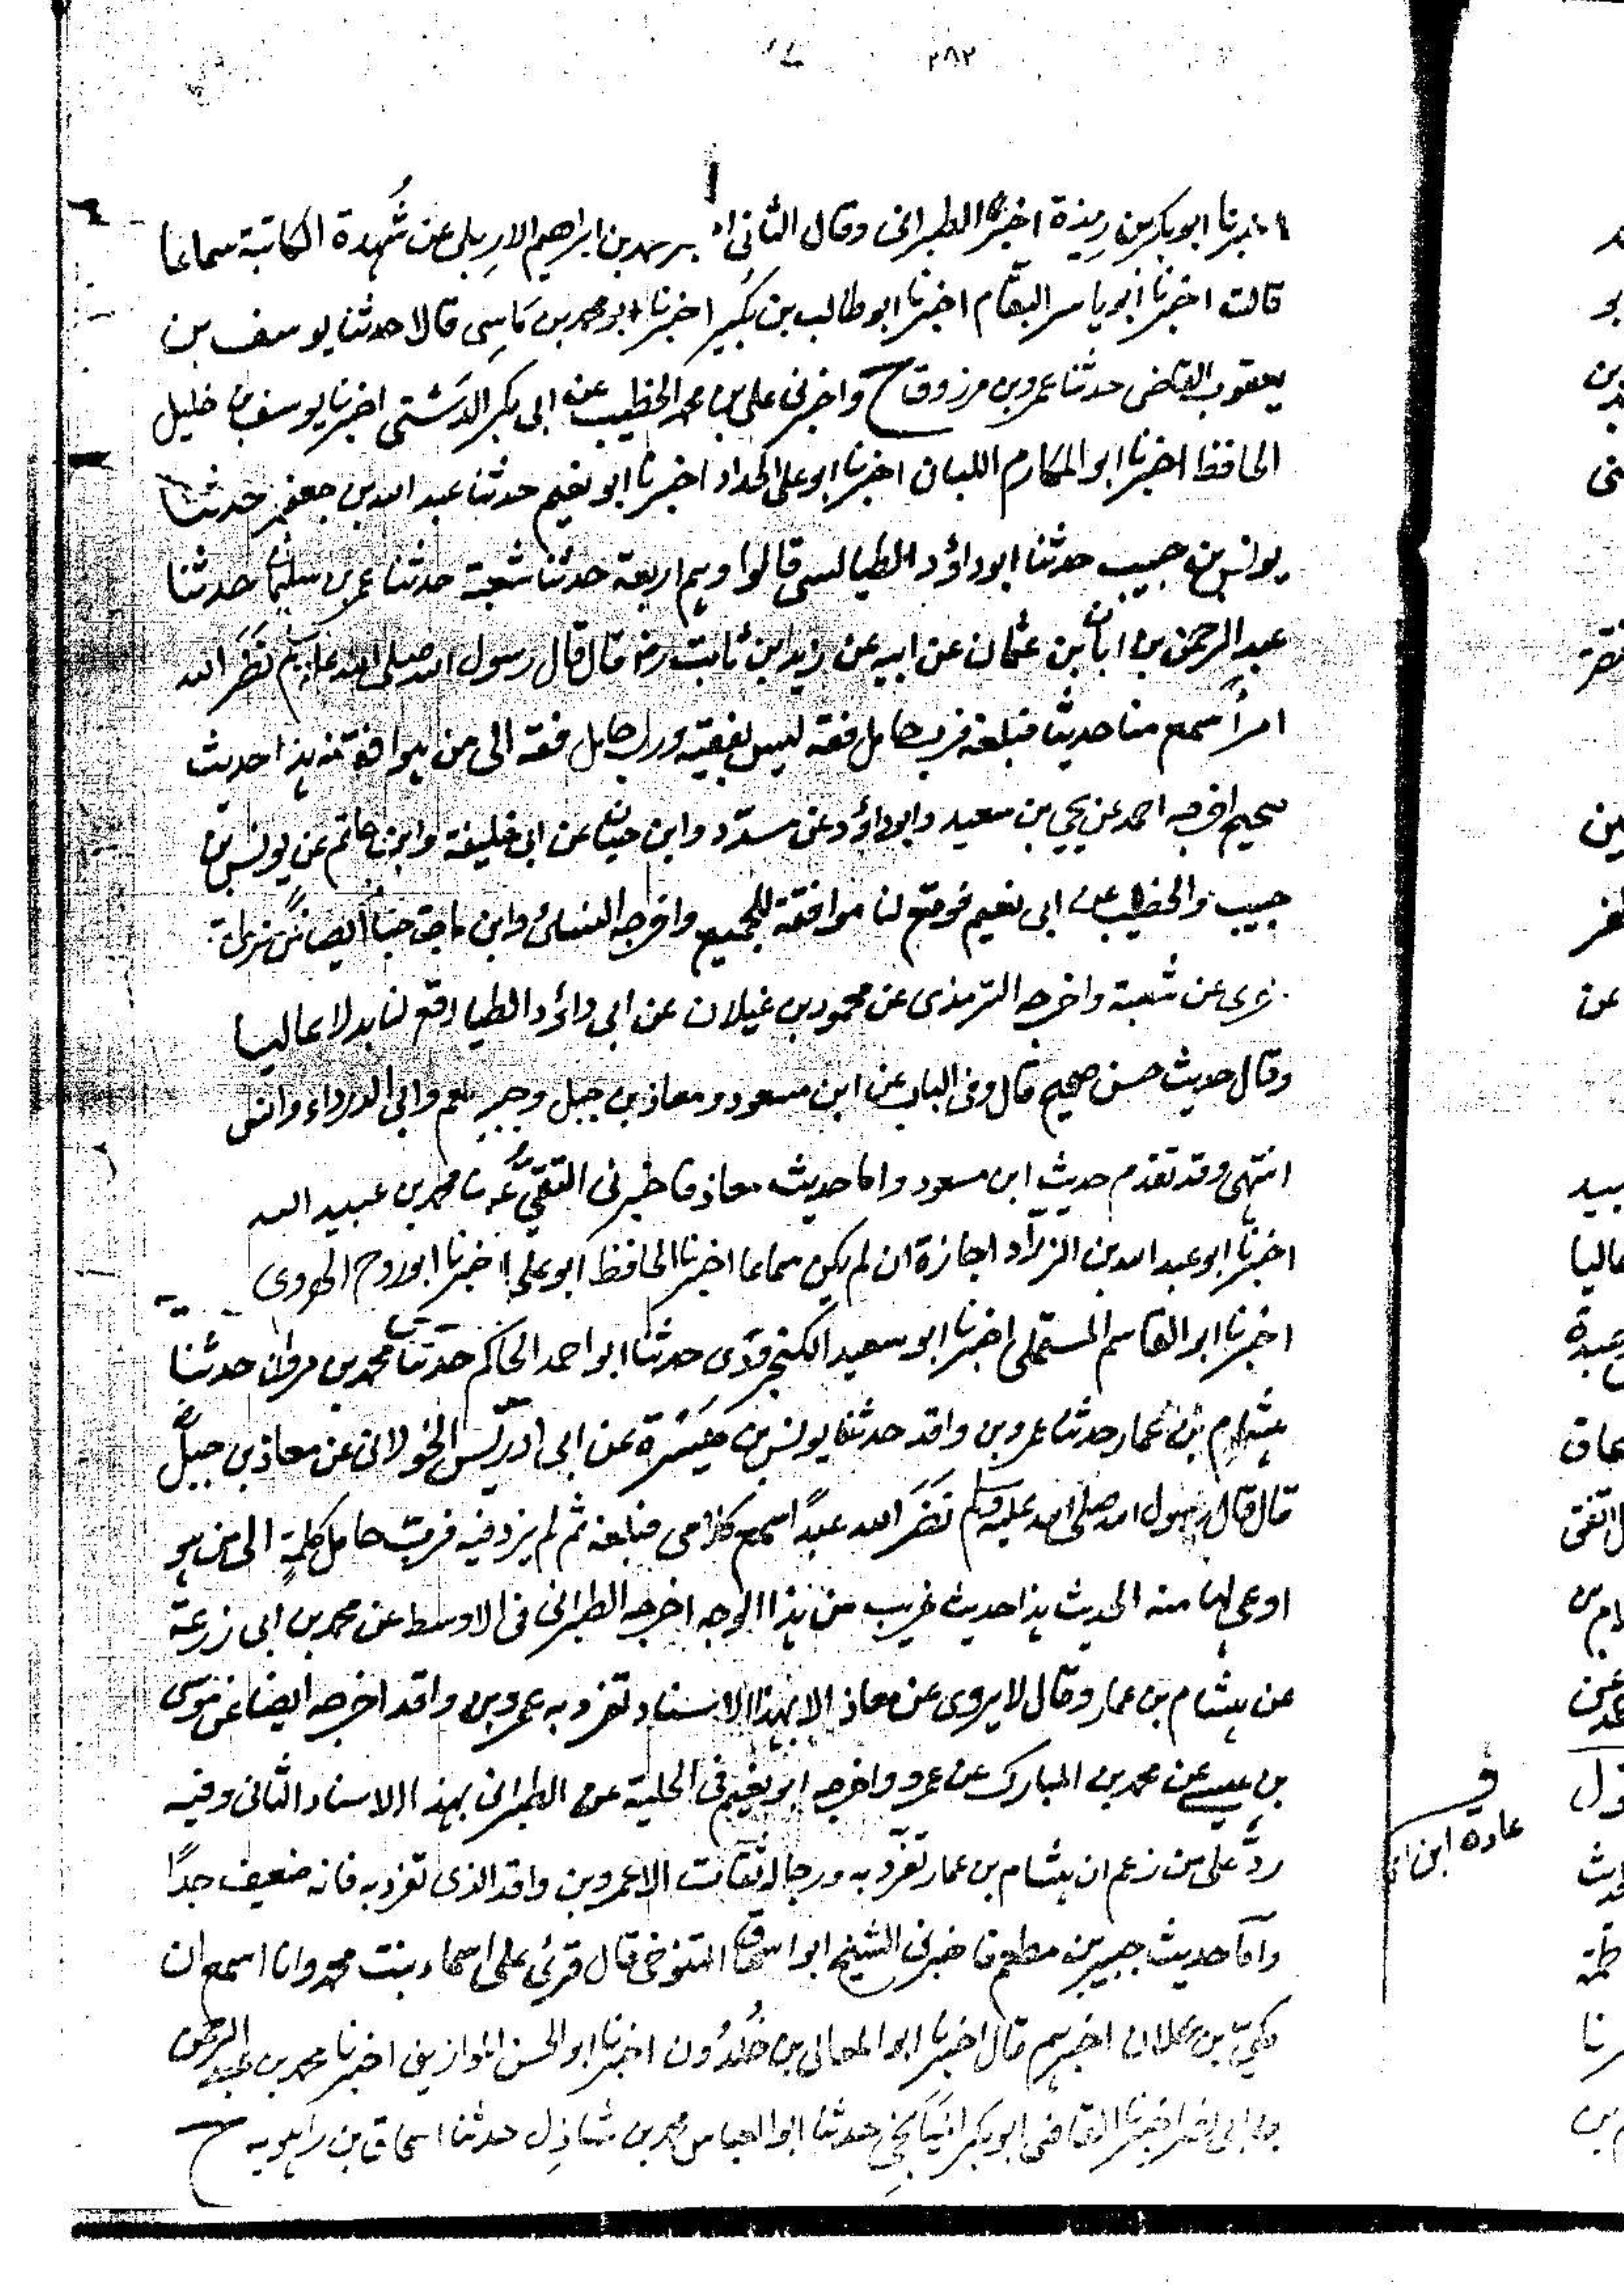 ٢٨٢
اخبرنا ابو بكر بن ريذة اخبرنا الطبرانى وقال الثانى بن ابراهيم الاربلى عن شُهدة الكاتبة سماعا
قالت اخبرنا ابو ياسر البقّام اخبرنا ابو طالب بن بُكير اخبرنا ابو محمد بن مَاسِى قالا حدثنا يوسف بن
يعقوب القاضى حدثنا عمرو بن مرزوق ح واخبرنى على بن محمد الخطيب عن ابى بكر الدَشتى اخبرنا يوسف بن خليل
الحافظ اخبرنا ابو المكارم اللبان اخبرنا ابو على الحداد اخبرنا ابو نعيم حدثنا عبد الله بن جعفر حدثنا
يونس بن حبيب حدثنا ابو داؤد الطيالسى قالوا وهم اربعة حدثنا شعبة حدثنا عمر بن سليمان حدثنا
عبد الرحمن بن ابان بن عثمان عن ابيه عن زيد ابن ثابت رض قال قال رسول الله صلى الله عليه وسلم نَضَّرَ الله
امرأً سمع منا حديثا فبلغه فرب حامل فقه ليس بفقيه ورب حامل فقه الى من هو افقه منه هذا حديث
صحيح اخرجه احمد عن يحيى بن سعيد وابو داؤد عن مسدّد وابن حبان عن ابى خليفة وابن ابى حاتم عن يونس بن
حبيب والخطيب عن ابى نعيم فوقع لنا موافقة للجميع واخرجه النسائى وابن ماجة حبان ايضا من
عن شعبة واخرجه الترمذى عن محمود بن غيلان عن ابى داؤد الطيا وقع لنا بدلا عاليا
وقال حديث حسن صحيح قال وفى الباب عن ابن مسعود ومعاذ بن جبل وجبير بن مطعم وابى الدرداء وانس
انتهى وقد تقدم حديث ابن مسعود واما حديث معاذ فاخبرنى التقىّ محمد بن عبيد الله
اخبرنا ابو عبد الله بن الزرّاد اجازة ان لم يكن سماعا اخبرنا الحافظ ابو على اخبرنا ابو روح الهروى
اخبرنا ابو القاسم المستملى اخبرنا ابو سعيد الكنجروذى حدثنا ابو احمد الحاكم حدثنا محمد بن مروان حدثنا
هشام بن عمار حدثنا عمرو بن واقد حدثنا يونس بن مَيسَرة عن ابى ادريس الخولانى عن معاذ بن جبل
قال قال رسول الله صلى الله عليه وسلم نَضَّرَ الله عبدًا سمع كلامى فبلغه ثم لم يزد فيه فرب حامل كلمةٍ الى من هو
اوعى لها منه الحديث هذا حديث غريب من هذا الوجه اخرجه الطبرانى فى الاوسط عن محمد بن ابى زرعة
عن هشام بن عمار وقال لا يروى عن معاذ الا بهذا الاسناد تفرد به عمرو بن واقد اخرجه ايضا عن موسى
بن عيسى عن محمد بن المبارك عن عمرو واخرجه ابو نعيم فى الحلية عن الطبرانى بهذا الاسناد الثانى وفيه
ردّ على من زعم ان هشام بن عمار تفرّد به ورجاله ثقات الا عمرو بن واقد الذى تفرد به فانه ضعيف جدًا
واما حديث جبير بن مطعم فاخبرنى الشيخ ابو اسحاق التنوخى قال قرئ على اسماء بنت محمد وانا اسمع ان
مكىّ بن علان اخبرهم قال اخبرنا ابو المعالى بن خَلدُون اخبرنا ابو الحسن الموازينى اخبرنا محمد بن عبد الرحمن
بن ابى نصر اخبرنا القاضى ابو بكر الميَانَجى حدثنا ابو العباس محمد بن شاذل حدثنا اسحاق بن راهويه ح